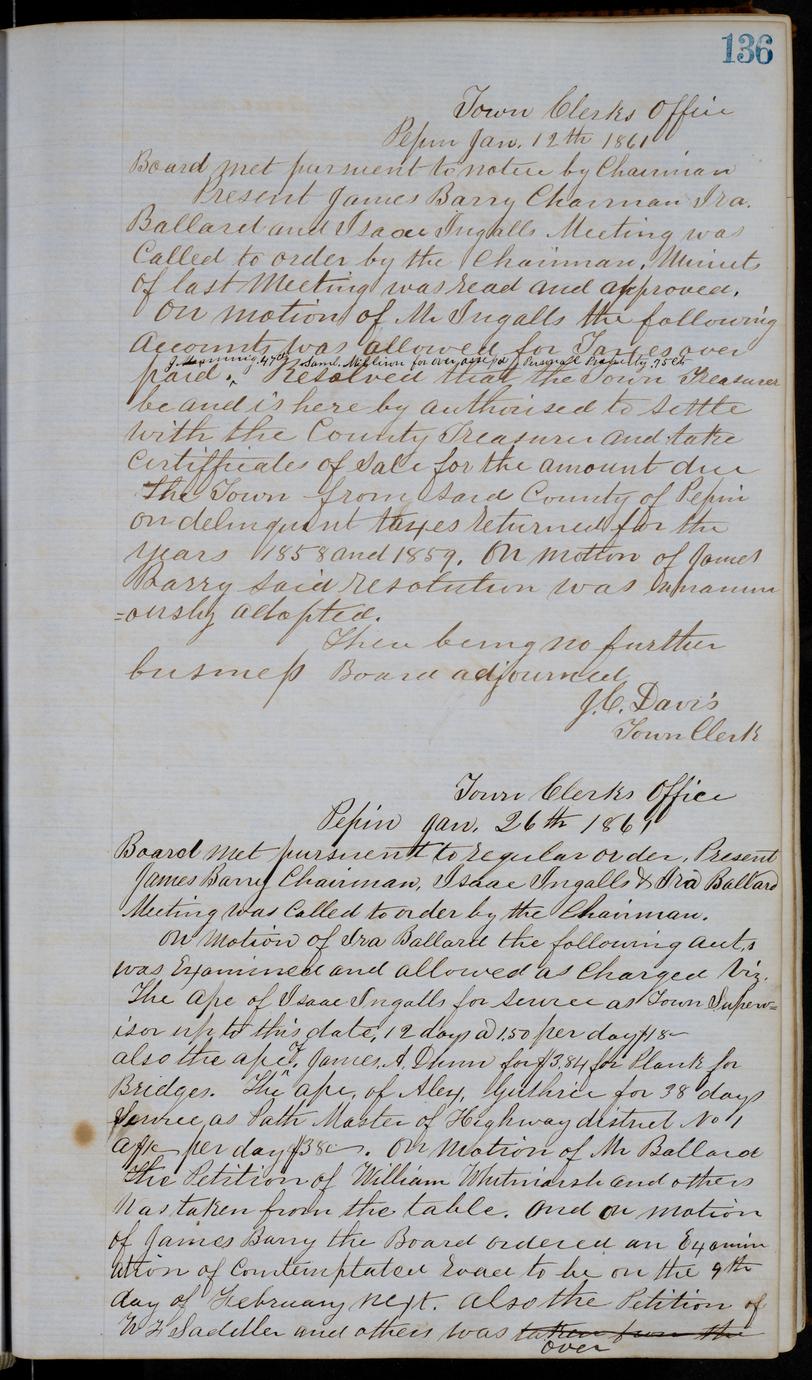 136
Town Clerks Office
Pepin Jan. 12th 1861
Board met pursuent to notice by Chairman
Present James Barry Chairman Ira.
Ballard and Isaac Ingalls Meeting was
Called to order by the Chairman. Minuts
of last Meeting was read and approved.
On motion of Mr Ingalls the following
accounts was allowed for Taxes over
J. Manning .47cts Saml. for over assesd Pursonall Propertty .75cts
paid. ^ Resolved that the Town Treasurer
be and is here by authorised to settle
with the County Treasurer and take
Certifficates of Sale for the amount due
the Town from said County of Pepin
on delinquent taxes returned for the
years 1858 and 1859. On motion of James
Barry said resolution was unanim
=ously adopted.
There being no further
business Board adjourned
J. C. Davis
Town Clerk
Town Clerks Office
Pepin Jan. 26th 1861
Board met pursuent to regular order. Present
James Barry Chairman, Isaac Ingalls & Ira Ballard
Meeting was Called to order by the Chairman.
On Motion of Ira Ballard the following
was Examined and allowed as Charged Viz.
The apc of Isaac Ingalls for service as Town Superv=
isor up to this date, 12 days @ 1.50 per day $18—
also the apc of James A. Dunn for $3.84 for Plank for
Bridges. The apc, of Alex, Guthrie for 38 days
Service as Path Master of Highway district No 1
per day $38 . On Motion of Mr Ballard
the Petition of William Whitmarsh and others
was taken from the table. And on motion
of James Barry the Board ordered an Examin
ation of Contemplated Road to be on the 9th
day of February next. also the Petition of
Sadeller and others was taken from the
over